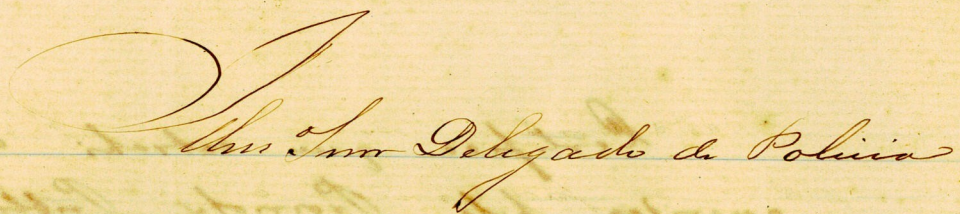 Illmo Snr Delegado de Policia